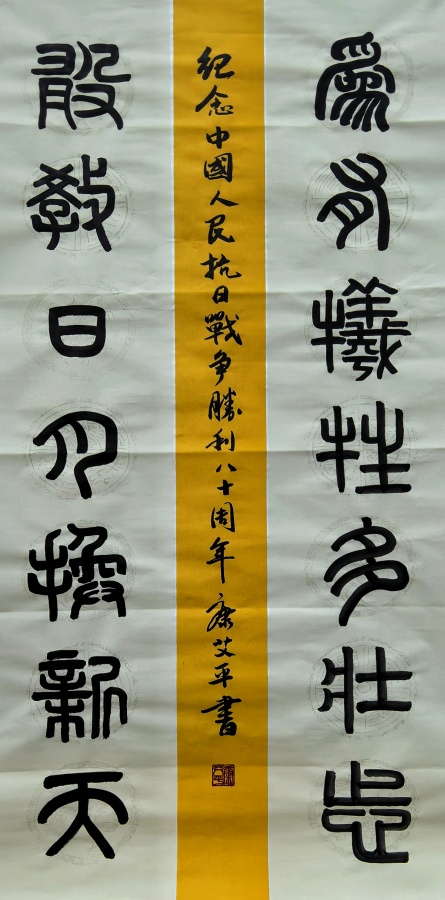 為有犧牲多壯志
紀念中國人民抗日戰争勝利八十周年 康艾平書
敢教日月換新天